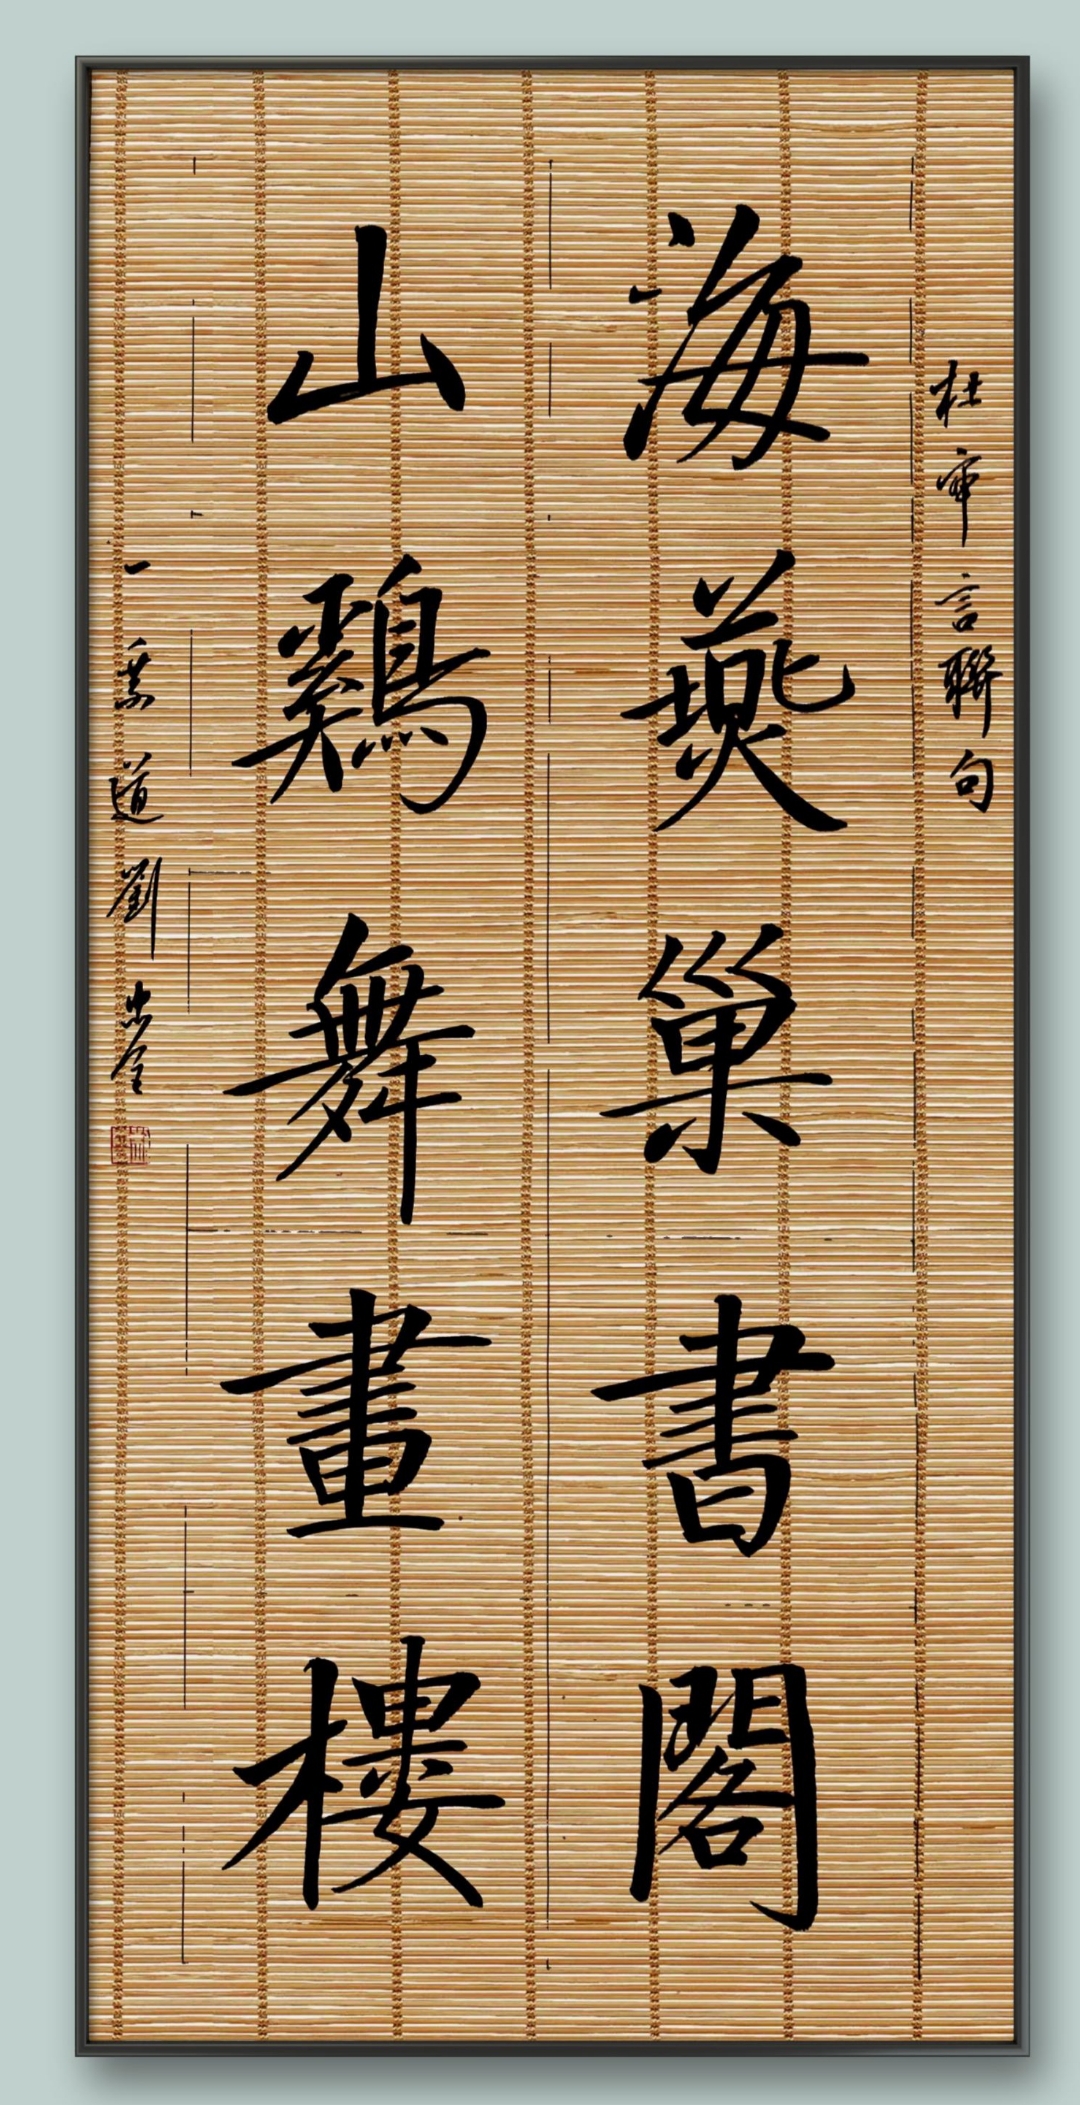 杜审言聯句
海燕巢書閣
山鷄舞畫樓
一 道劉忠全